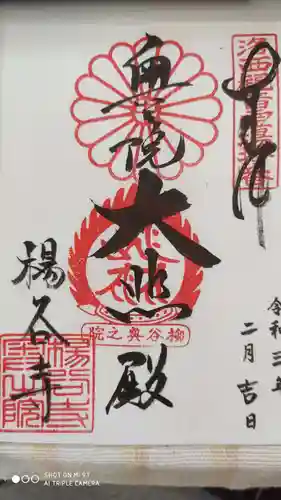 奉拝
令和三年
二月吉日
奥之院
大悲殿
柳谷奥之院
楊谷寺
SHOT ON MI 9T
AI TRIPLE CAMERA